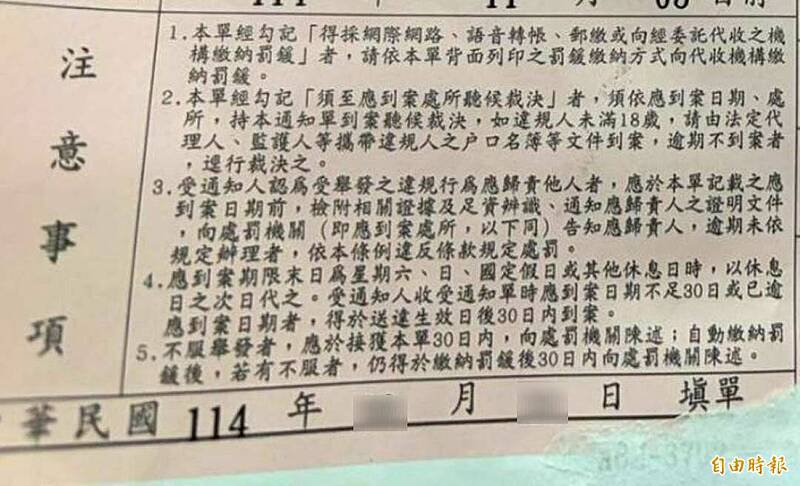 1.本單經勾記「得採網際網路、語音轉帳、郵繳或向經委託代收之機
構繳納罰鍰」者，請依本單背面列印之罰鍰繳納方式向代收機構繳
納罰鍰。
2.本單經勾記「須至應到案處所聽候裁決」者，須依應到案日期、處
所，持本通知單到案聽候裁決，如違規人未滿18歲，請由法定代
理人、監護人等攜帶違規人之户口名簿等文件到案，逾期不到案者
，逕行裁決之。
3.受通知人認為受舉發之違規行為應歸責他人者，應於本單記載之應
到案日期前，檢附相關證據及足資辨識、通知應歸責人之證明文件
，向處罰機關（即應到案處所，以下同）告知應歸責人，逾期未依
規定辦理者，依本條例違反條款規定處罰。
4.應到案期限末日為星期六、日、國定假日或其他休息日時，以休息
日之次日代之。受通知人收受通知單時應到案日期不足30日或已逾
應到案日期者，得於送達生效日後30日內到案。
5.不服舉發者，應於接獲本單30日內，向處罰機關陳述；自動繳納罰
鍰後，若有不服者，仍得於繳納罰鍰後30日內向處罰機關陳述。
注意事項
華民國 114 年 月 日 填單
自由時報